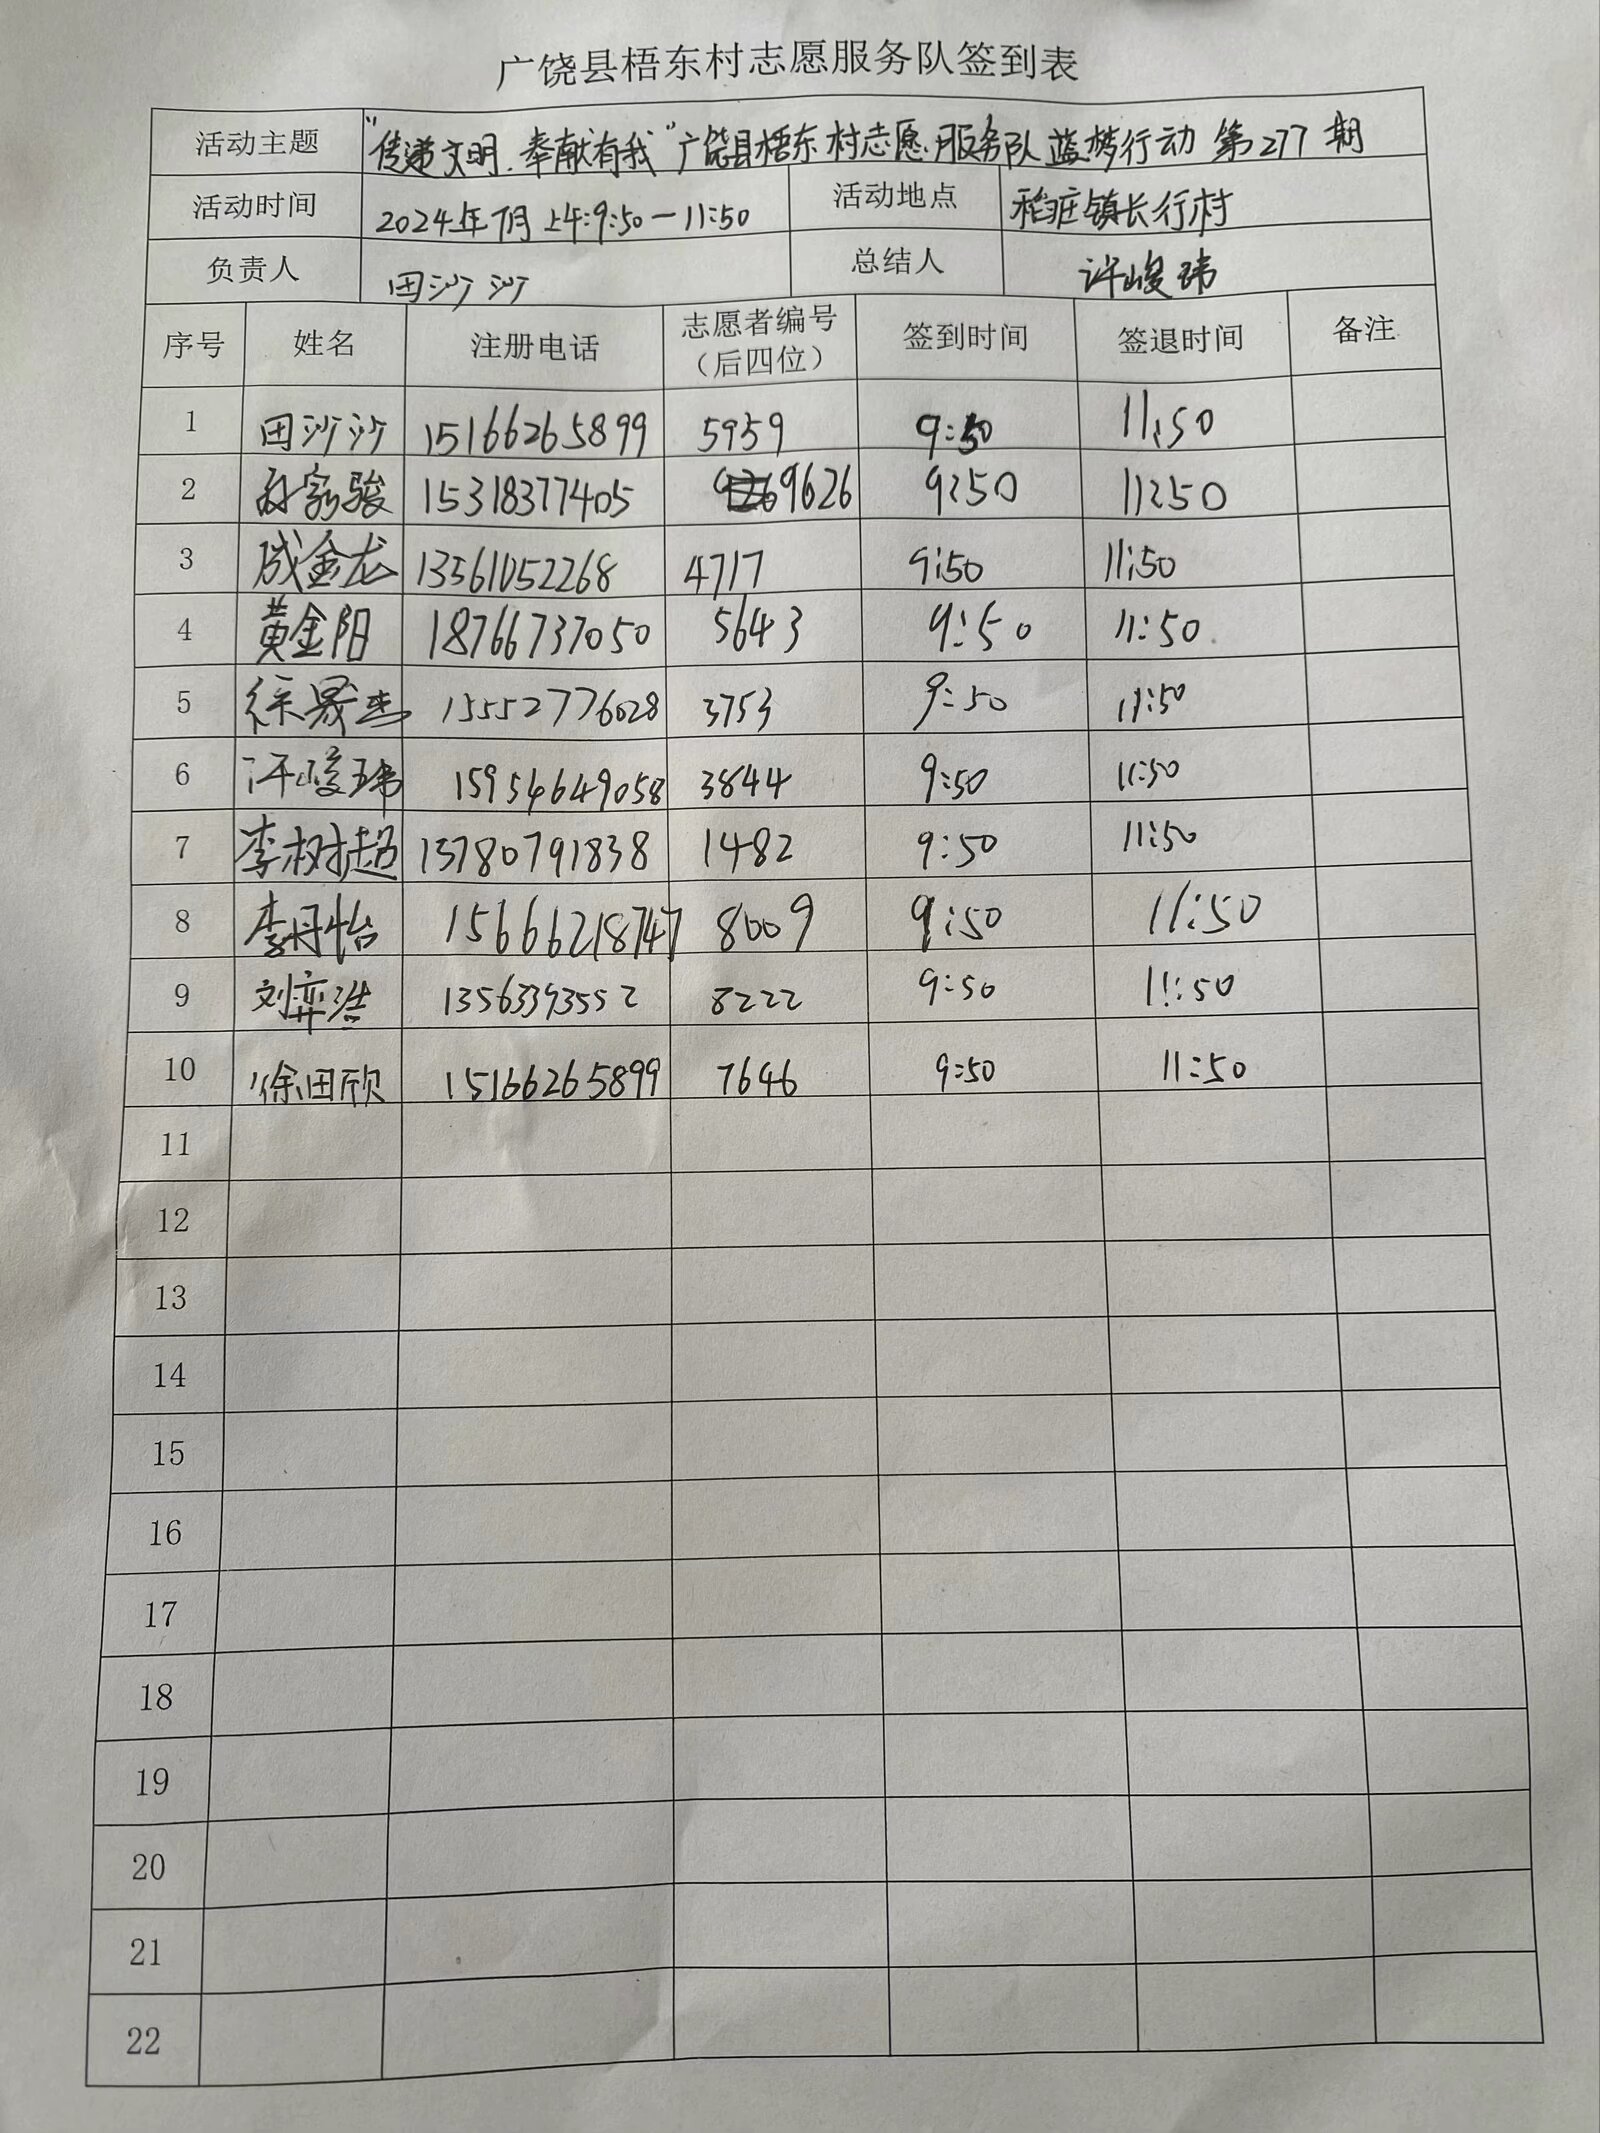 广饶县梧东村志愿服务队签到表
活动主题 "传递文明.奉献有我"广饶县梧东村志愿服务队蓝梦行动 第277期
活动时间 2024年7月上午:9:50—11:50 活动地点 稻庄镇长行村
负责人 田沙沙 总结人 许峻玮
序号 姓名 注册电话 志愿者编号（后四位） 签到时间 签退时间 备注
1 田沙沙 15166265899 5959 9:50 11:50
2 15318377405 9626 9:50 11:50
3 成金龙 13561052268 4717 9:50 11:50
4 黄金阳 18766737050 5643 9:50 11:50
5 徐晟杰 15552776028 3753 9:50 11:50
6 许峻玮 15954649058 3844 9:50 11:50
7 李树超 13780791838 1482 9:50 11:50
8 李丹怡 15666218747 8009 9:50 11:50
9 刘弈浩 13563393552 8222 9:50 11:50
10 徐田欣 15166265899 7646 9:50 11:50
11
12
13
14
15
16
17
18
19
20
21
22